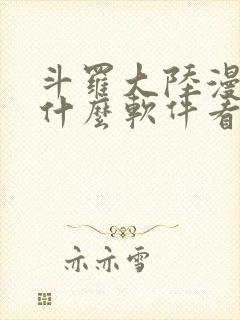 斗羅大陸漫
什麼軟件看
亦亦雪